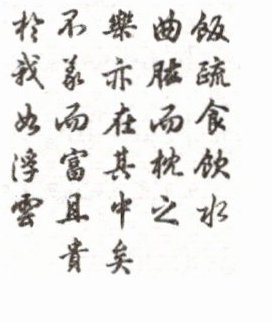 飯疏食飲水
曲肱而枕之
樂亦在其中矣
不義而富且貴
於我如浮雲